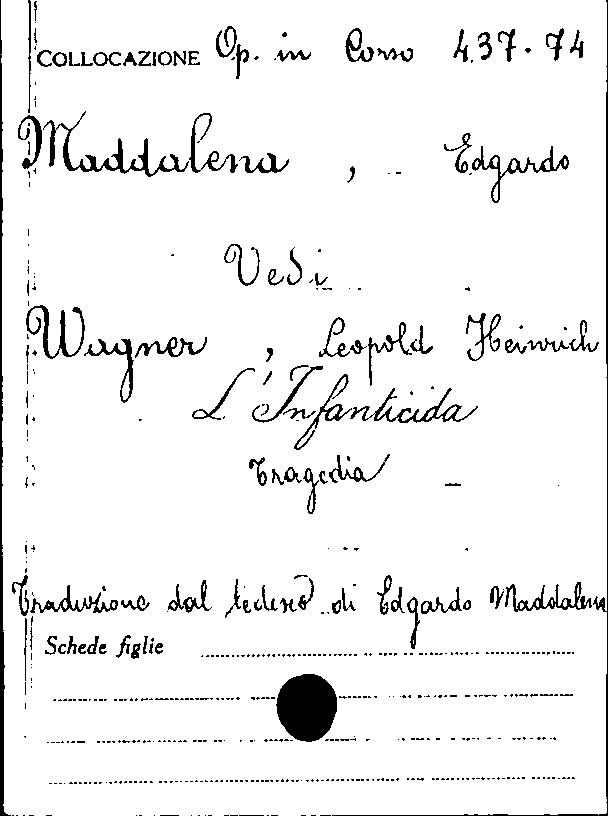 COLLOCAZIONE Op. in Corso 437.74
Maddalena, Edgardo
Vedi
Wagner, Leopold Heinrich
L'Infanticida
Tragedia
Traduzione dal tedesco di Edgardo Maddalena
Schede figlie